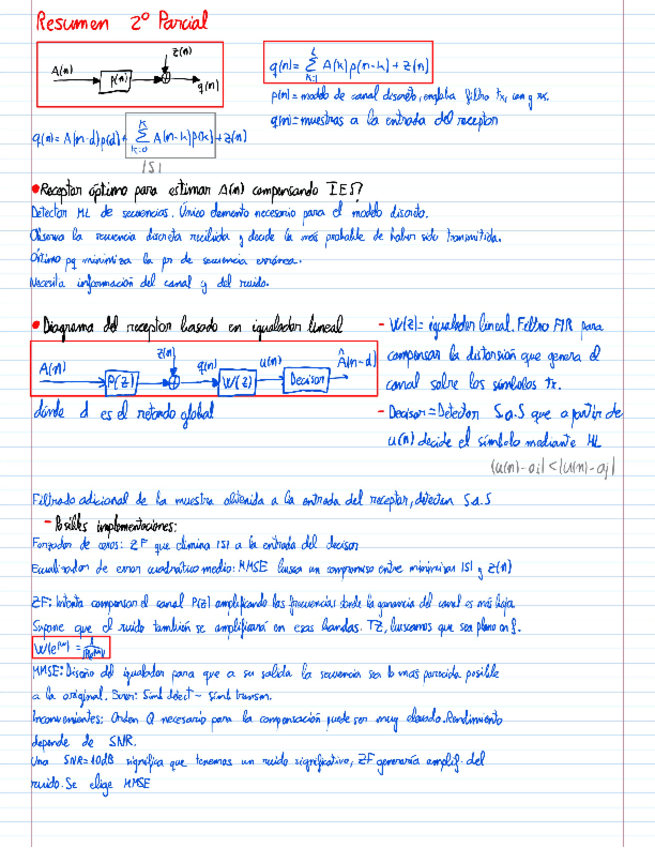 Resumen 2º Parcial
A(n) p(n) z(n) q(n)
q(n)= Σ A(k)p(n-k)+z(n)
p(n)= modelo de canal discreto, engloba filtro tx, can y rx.
q(n)= muestras a la entrada del receptor
q(n)= A(n-d)p(d)+ Σ k=0 A(n-k)p(k)+z(n)
ISI
• Receptor óptimo para estimar A(n) compensando IES?
Detector ML de secuencias. Único elemento necesario para el modelo discreto.
Observa la secuencia discreta recibida y decide la más probable de haber sido transmitida.
Óptimo pq minimiza la pr de secuencia errónea.
Necesita información del canal y del ruido.
• Diagrama del receptor basado en igualador lineal
A(n) P(z) z(n) q(n) W(z) u(n) Decisor Â(n-d)
dónde d es el retardo global
- W(z)= igualador lineal. Filtro FIR para
compensar la distorsión que genera el
canal sobre los símbolos tx.
- Decisor = Detector S.a.S que a partir de
u(n) decide el símbolo mediante ML
|u(n)-ai|<|u(n)-aj|
Filtrado adicional de la muestra obtenida a la entrada del receptor, detector S.a.S
- Posibles implementaciones:
Forzador de ceros: ZF que elimina ISI a la entrada del decisor
Ecualizador de error cuadrático medio: MMSE busca un compromiso entre minimizar ISI y z(n)
ZF: Intenta compensar el canal P(z) amplificando las frecuencias donde la ganancia del canal es más baja.
Supone que el ruido también se amplificará en esas bandas. TZ, buscamos que sea plano en f.
MMSE: Diseño del igualador para que a su salida la secuencia sea lo mas parecida posible
a la original. Símb detect - símb transm.
Inconvenientes: Orden Q necesario para la compensación puede ser muy elevado. Rendimiento
depende de SNR.
Una SNR=10dB significa que tenemos un ruido significativo, ZF generaría amplif. del
ruido. Se elige MMSE